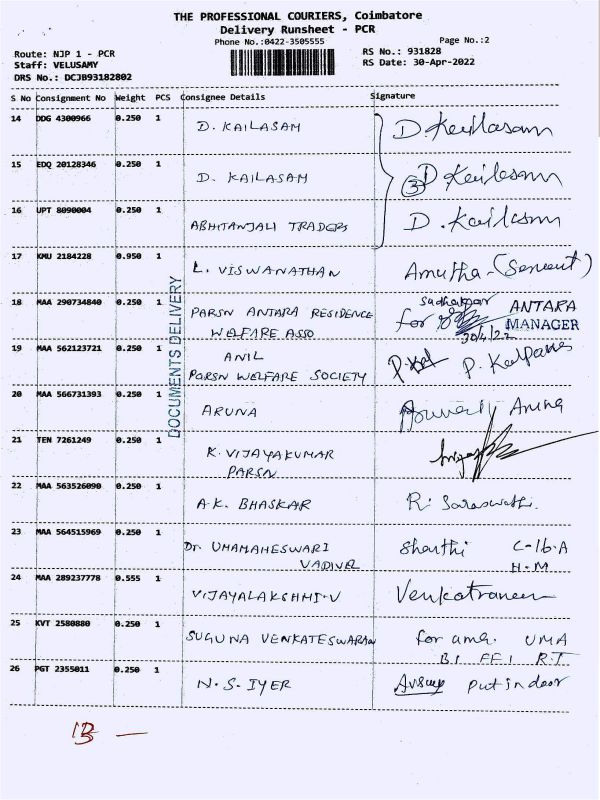 THE PROFESSIONAL COURIERS, Coimbatore
Delivery Runsheet - PCR
Phone No.:0422-3505555
Page No.:2
Route: NJP 1 - PCR
RS No.: 931828
Staff: VELUSAMY
RS Date: 30-Apr-2022
DRS No.: DCJB93182802
S No Consignment No Weight PCS Consignee Details Signature
14 DDG 4300966 0.250 1 D. KAILASAM D. Kailasam
15 EDQ 20128346 0.250 1 D. KAILASAM 3 D Kailasam
16 UPT 8090004 0.250 1 ABHITANJALI TRADERS D. Kailasam
17 KMU 2184228 0.950 1 L. VISWANATHAN Amutha - (Servent)
18 MAA 290734840 0.250 1 PARSN ANTARA RESIDENCE Sudhakar ANTARA
WELFARE ASSO for 30/4/22 MANAGER
19 MAA 562123721 0.250 1 ANIL P. Kalpana
PARSN WELFARE SOCIETY
20 MAA 566731393 0.250 1 ARUNA Aruna
21 TEN 7261249 0.250 1 K. VIJAYAKUMAR
PARSN
22 MAA 563526090 0.250 1 A.K. BHASKAR R. Saraswathi.
23 MAA 564515969 0.250 1 Dr. UMAMAHESWARI Sharthi C-16-A
VADIVEL H.M
24 MAA 289237778 0.555 1 VIJAYALAKSHMI.V
25 KVT 2580880 0.250 1 SUGUNA VENKATESWARAN for UMA
R.T
26 PGT 2355011 0.250 1 N.S. IYER put in door
DOCUMENTS DELIVERY
13 —